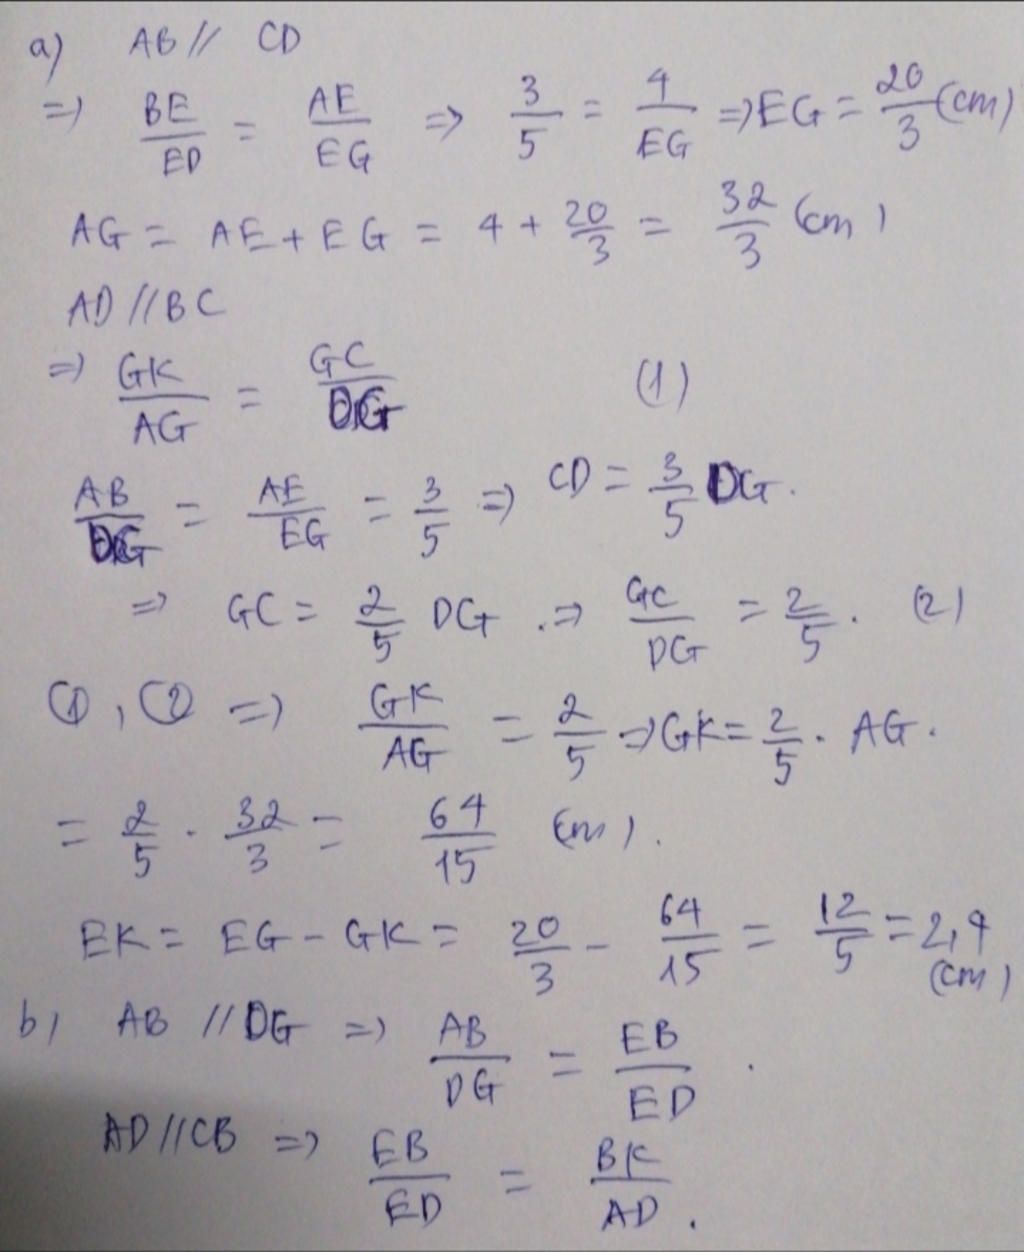 a) AB // CD
=> BE/ED = AE/EG => 3/5 = 4/EG => EG = 20/3 (cm)
AG = AE + EG = 4 + 20/3 = 32/3 (cm)
AD // BC
=> GK/AG = GC/DG (1)
AB/DG = AE/EG = 3/5 => CD = 3/5 DG.
=> GC = 2/5 DG . => GC/DG = 2/5 . (2)
①, ② => GK/AG = 2/5 => GK = 2/5 . AG .
= 2/5 . 32/3 = 64/15 (cm) .
EK = EG - GK = 20/3 - 64/15 = 12/5 = 2,4 (cm)
b) AB // DG => AB/DG = EB/ED .
AD // CB => EB/ED = BK/AD .